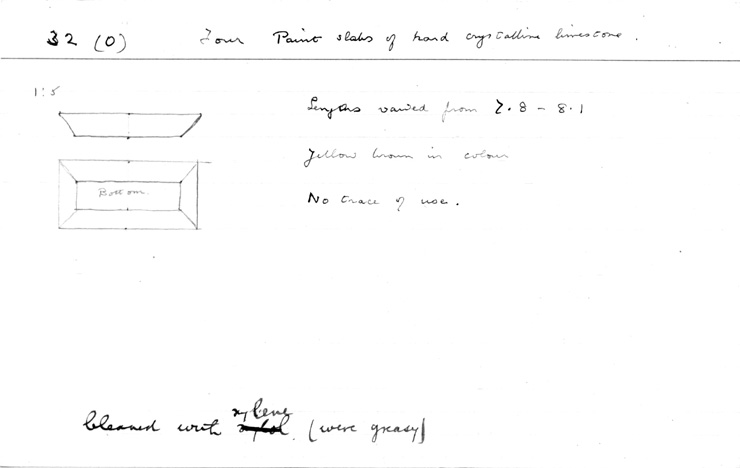 32 (O) Four Paint slabs of hard crystalline limestone.
1:5
Lengths varied from 7.8 - 8.1
Yellow brown in colour
Bottom
No trace of use.
xylene
Cleaned with xylol. (were greasy)